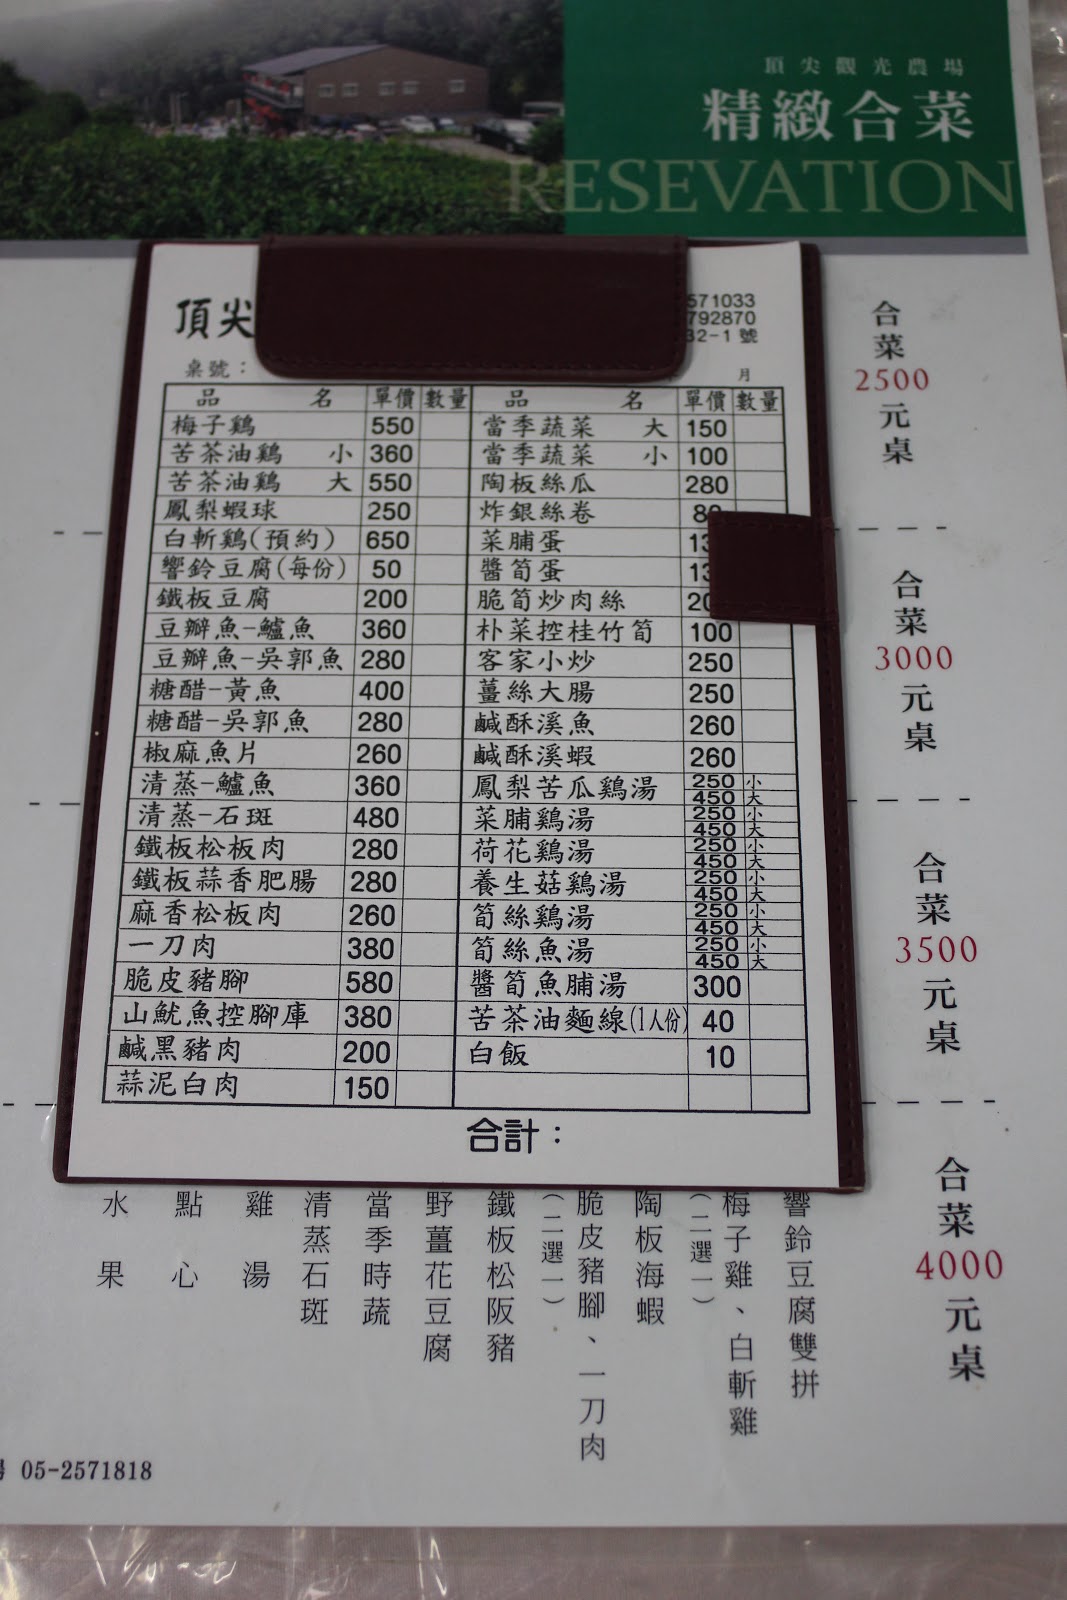 頂尖觀光農場
精緻合菜
RESEVATION
頂尖
571033
792870
32-1號
桌號：
月
品名 單價 數量 品名 單價 數量
梅子鷄 550
苦茶油鷄 小 360
苦茶油鷄 大 550
鳳梨蝦球 250
白斬鷄(預約) 650
響鈴豆腐(每份) 50
鐵板豆腐 200
豆瓣魚-鱸魚 360
豆瓣魚-吳郭魚 280
糖醋-黃魚 400
糖醋-吳郭魚 280
椒麻魚片 260
清蒸-鱸魚 360
清蒸-石斑 480
鐵板松板肉 280
鐵板蒜香肥腸 280
麻香松板肉 260
一刀肉 380
脆皮豬腳 580
山魷魚控腳庫 380
鹹黑豬肉 200
蒜泥白肉 150
當季蔬菜 大 150
當季蔬菜 小 100
陶板絲瓜 280
炸銀絲卷
菜脯蛋
醬筍蛋
脆筍炒肉絲
朴菜控桂竹筍 100
客家小炒 250
薑絲大腸 250
鹹酥溪魚 260
鹹酥溪蝦 260
鳳梨苦瓜鷄湯 250 小 450 大
菜脯鷄湯 250 小 450 大
荷花鷄湯 250 小 450 大
養生菇鷄湯 250 小 450 大
筍絲鷄湯 250 小 450 大
筍絲魚湯 250 小 450 大
醬筍魚脯湯 300
苦茶油麵線(1人份) 40
白飯 10
合計：
合菜2500元桌
合菜3000元桌
合菜3500元桌
合菜4000元桌
響鈴豆腐雙拼
梅子雞、白斬雞
(二選一)
陶板海蝦
脆皮豬腳、一刀肉
(二選一)
鐵板松阪豬
野薑花豆腐
當季時蔬
清蒸石斑
雞湯
點心
水果
05-2571818